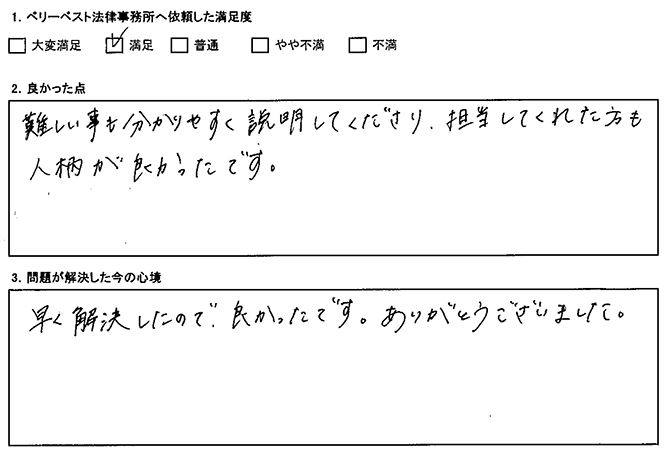 1. ベリーベスト法律事務所へ依頼した満足度
□ 大変満足 ☑ 満足 □ 普通 □ やや不満 □ 不満
2. 良かった点
難しい事も分かりやすく説明してくださり、担当してくれた方も
人柄が良かったです。
3. 問題が解決した今の心境
早く解決したので、良かったです。ありがとうございました。